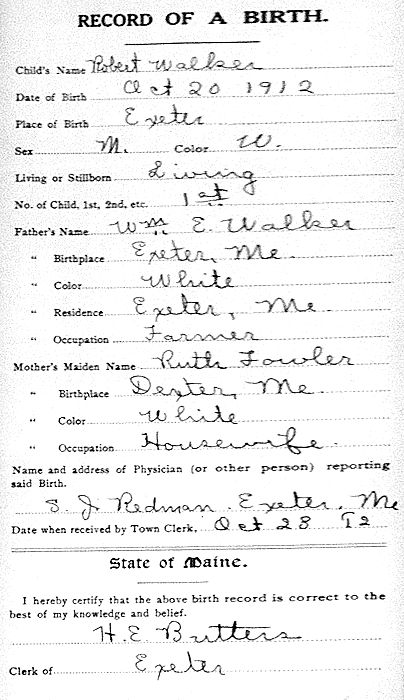 RECORD OF A BIRTH.
Child's Name Robert Walker
Date of Birth Oct 20 1912
Place of Birth Exeter
Sex M. Color W.
Living or Stillborn Living
No. of Child, 1st, 2nd, etc. 1st
Father's Name Wm E. Walker
" Birthplace Exeter, Me.
" Color White
" Residence Exeter, Me.
" Occupation Farmer
Mother's Maiden Name Ruth Fowler
" Birthplace Dexter, Me.
" Color White
" Occupation Housewife.
Name and address of Physician (or other person) reporting
said Birth.
S. J. Redman. Exeter, Me
Date when received by Town Clerk, Oct 28 12
State of Maine.
I hereby certify that the above birth record is correct to the
best of my knowledge and belief.
H. E Butters
Clerk of Exeter